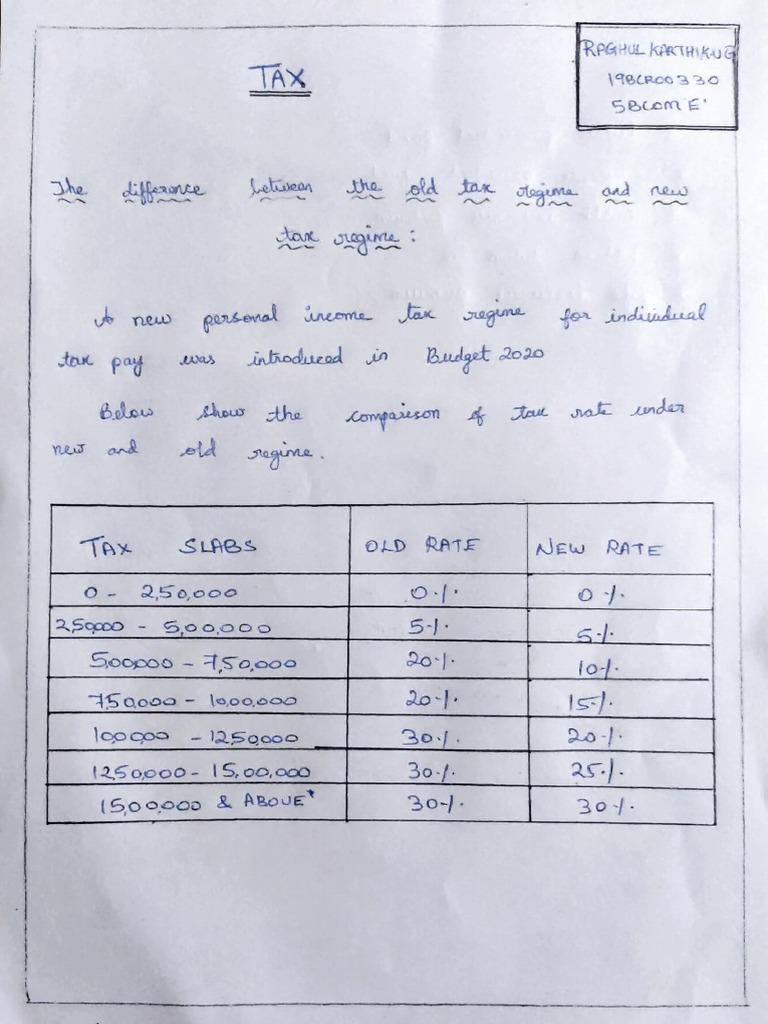 TAX
RAGHUL KARTHIK U G
19BCR00330
5BCOM 'E'
The difference between the old tax regime and new
tax regime :
A new personal income tax regime for individual
tax pay was introduced in Budget 2020
Below show the comparison of tax rate under
new and old regime.
TAX SLABS OLD RATE NEW RATE
0 - 2,50,000 0% 0%
250,000 - 5,00,000 5% 5%
5,00,000 - 7,50,000 20% 10%
750,000 - 10,00,000 20% 15%
100,000 - 1250,000 30% 20%
1250,000 - 15,00,000 30% 25%
15,00,000 & ABOVE 30% 30%